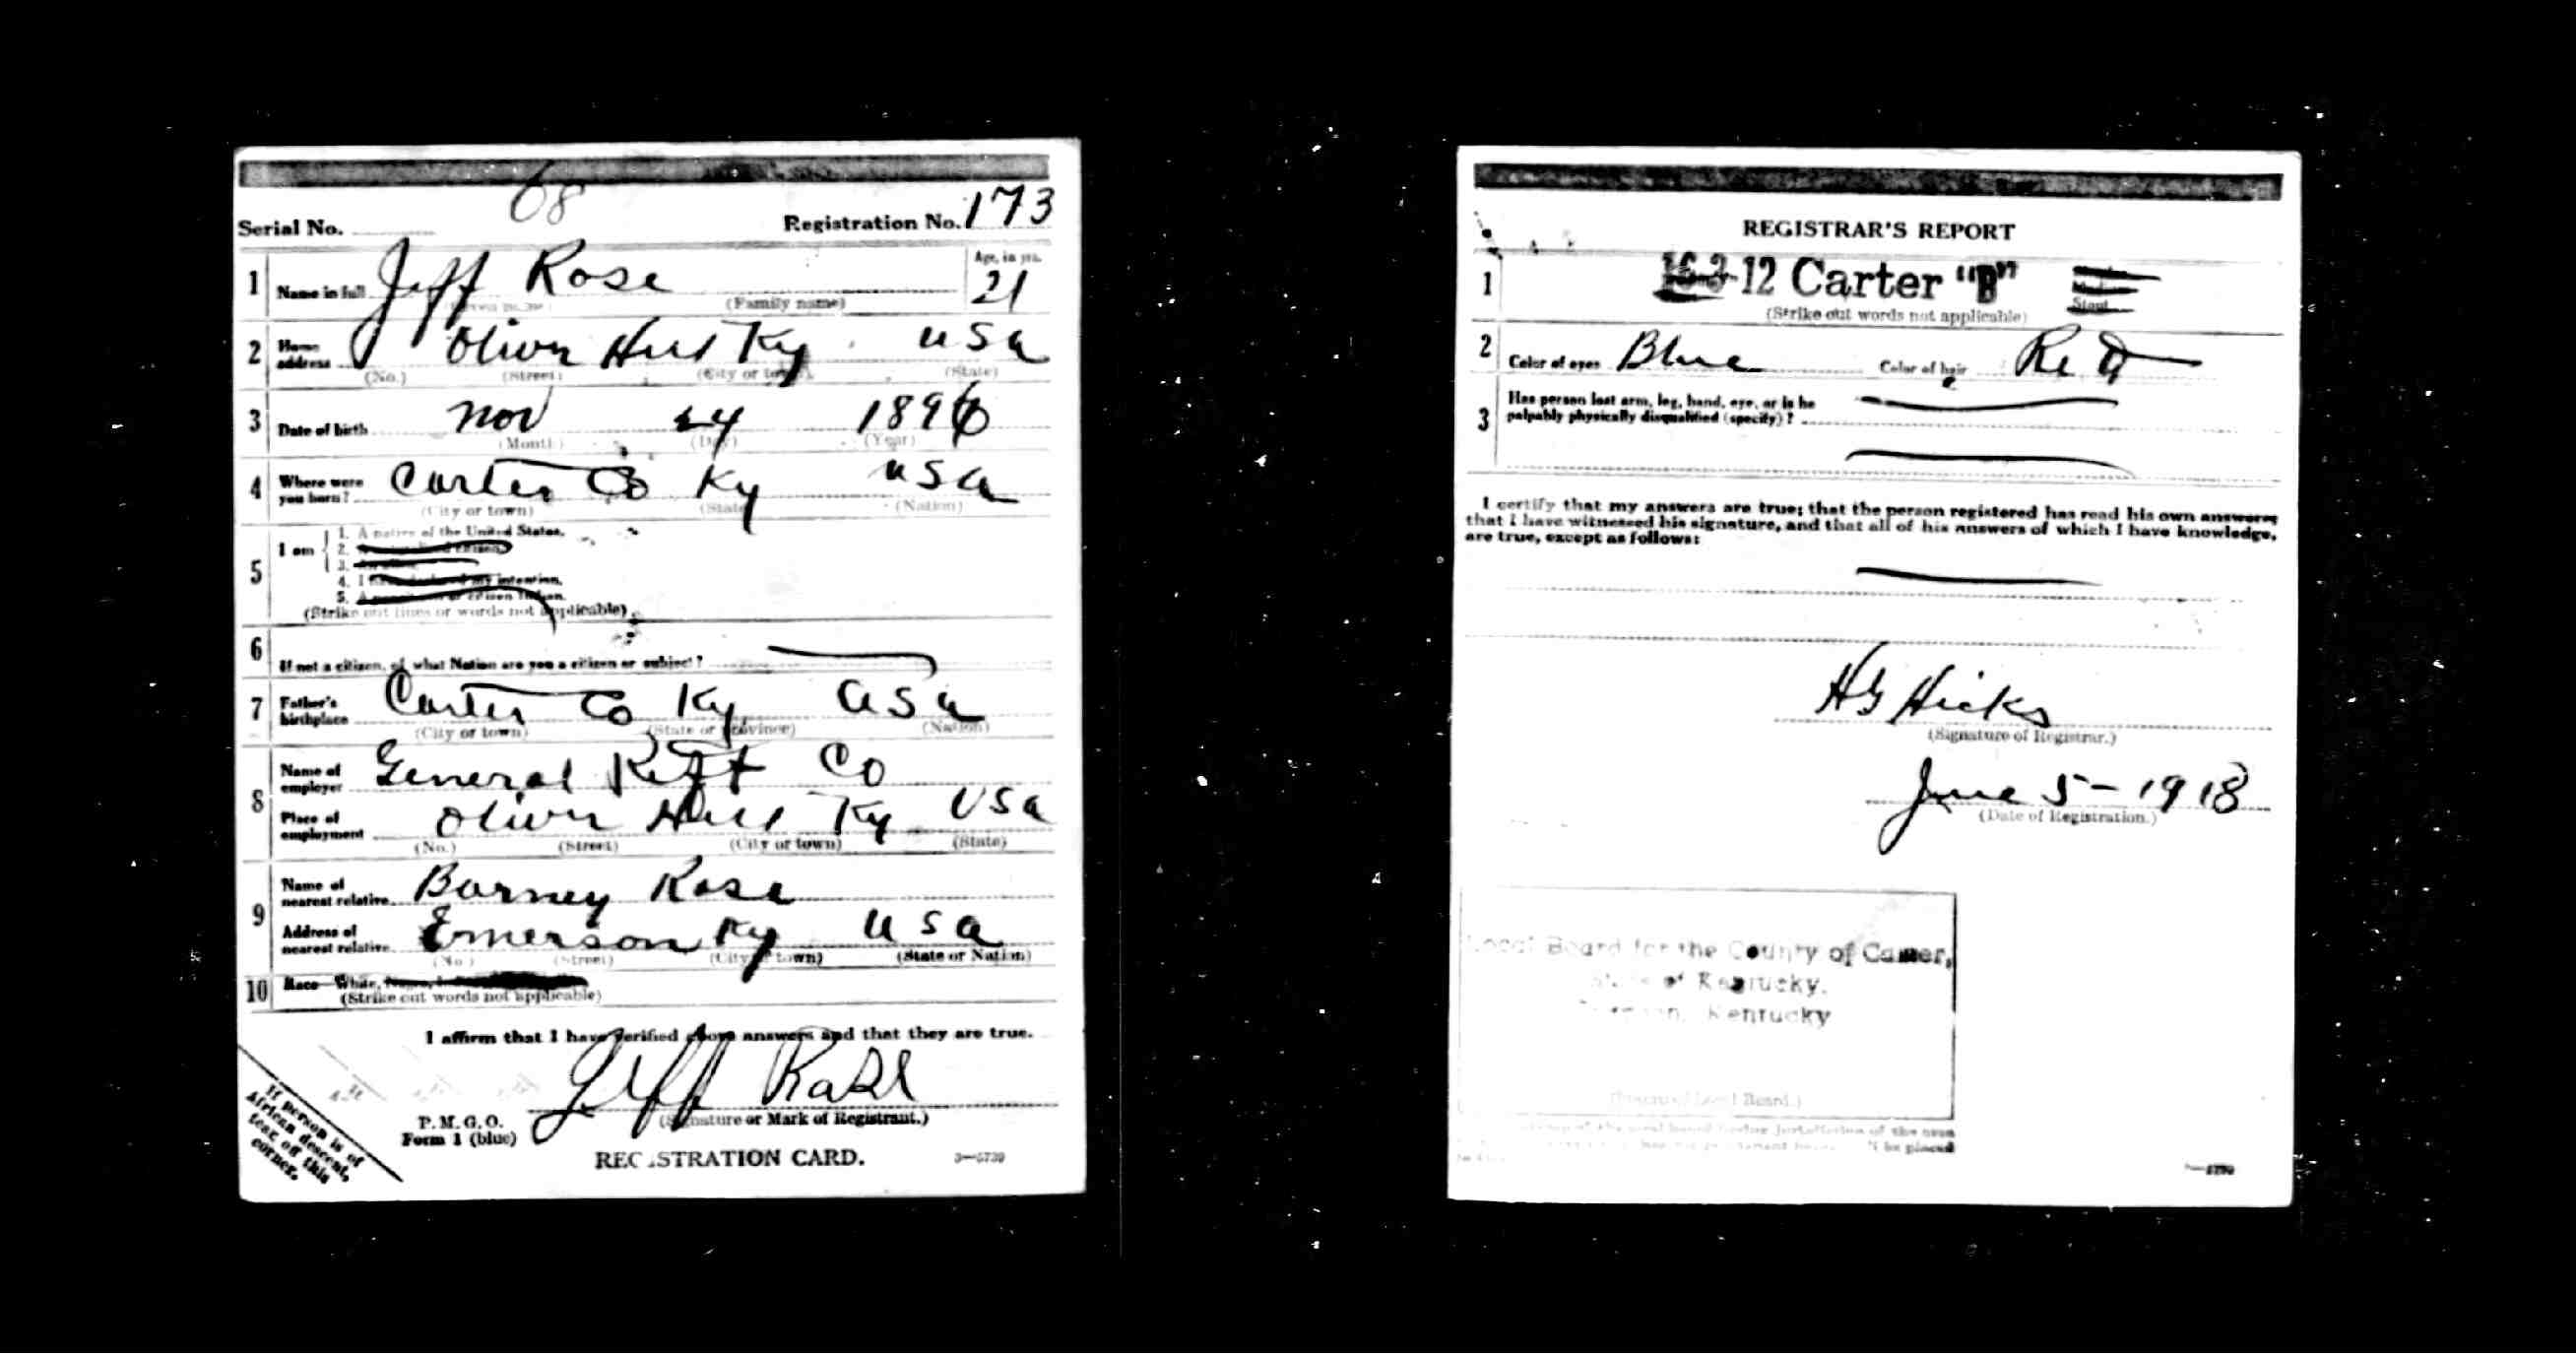 68
Serial No. Registration No. 173
1 Name in full Jeff Rose Age, in yrs. 21
(Family name)
2 Home address Olive Hill Ky USA
(No.) (Street) (City or town) (State)
3 Date of birth Nov 24 1896
(Month) (Day) (Year)
4 Where were you born? Carter Co Ky USA
(City or town) (State) (Nation)
5 I am 1. A native of the United States.
2.
3.
4. I my intention.
5. A or citizen Indian.
(Strike out lines or words not applicable)
6 If not a citizen, of what Nation are you a citizen or subject?
7 Father's birthplace Carter Co Ky USA
(City or town) (State or province) (Nation)
8 Name of employer General Co
Place of employment Olive Hill Ky USA
(No.) (Street) (City or town) (State)
9 Name of nearest relative Barney Rose
Address of nearest relative Emerson Ky USA
(No.) (Street) (City or town) (State or Nation)
10 Race—White,
(Strike out words not applicable)
I affirm that I have verified above answers and that they are true.
Jeff Rose
P. M. G. O. (Signature or Mark of Registrant.)
Form 1 (blue)
REGISTRATION CARD. 3—5739
If person is of African descent, tear off this corner.
REGISTRAR'S REPORT
1 12 Carter "B" Stout
(Strike out words not applicable)
2 Color of eyes Blue Color of hair Red
3 Has person lost arm, leg, hand, eye, or is he
palpably physically disqualified (specify)?
I certify that my answers are true; that the person registered has read his own answers;
that I have witnessed his signature, and that all of his answers of which I have knowledge,
are true, except as follows:
HG Hicks
(Signature of Registrar.)
June 5-1918
(Date of Registration.)
Local Board for the County of Carter,
State of Kentucky.
Kentucky
Local Board.)